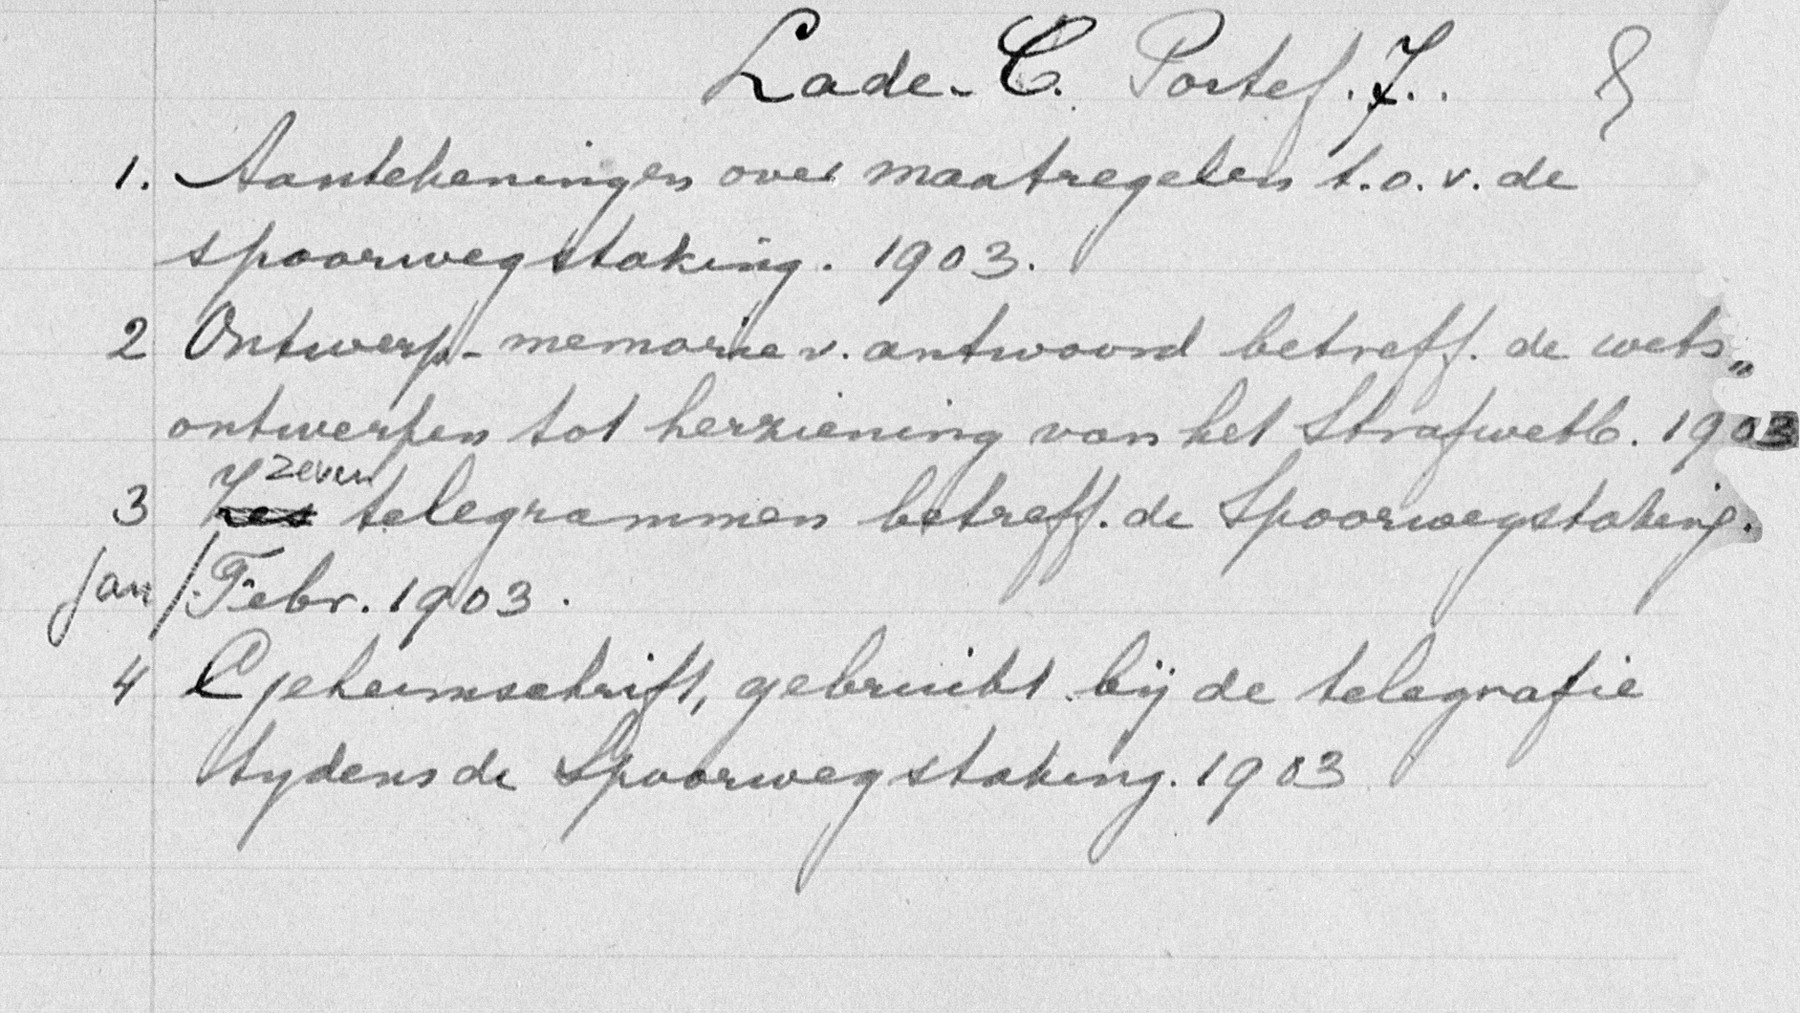 Lade-C. Portef. 7..
1. Aantekeningen over maatregelen t.o.v. de
spoorwegstaking. 1903.
2 Ontwerp-memorie v. antwoord betreff. de wets„
ontwerpen tot herziening van het Strafwetb. 1903
zeven
3 Zes telegrammen betreff. de Spoorwegstaking.
Jan/Febr. 1903.
4 Geheimschrift, gebruikt bij de telegrafie
tydens de Spoorwegstaking. 1903